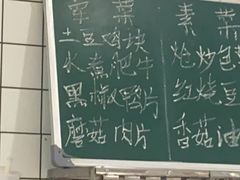 荤菜 素菜
土豆鸡块 炝炒包
水煮肥牛 红烧豆
黑椒鸡片 香菇油
蘑菇肉片